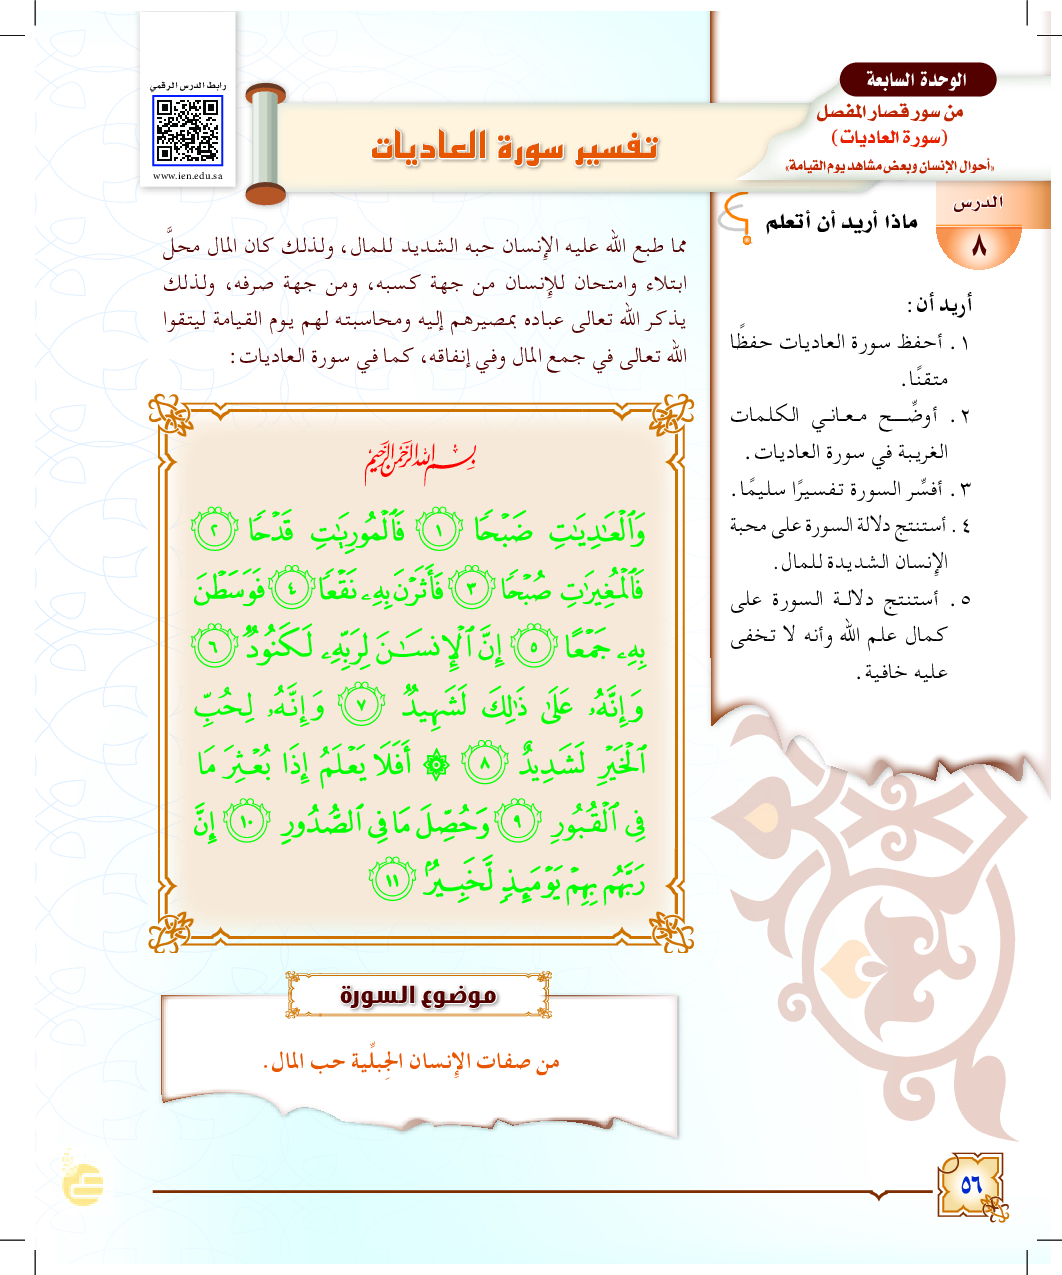 رابط الدرس الرقمي
www.ien.edu.sa
الوحدة السابعة
من سور قصار المفصل
(سورة العاديات)
«أحوال الإنسان وبعض مشاهد يوم القيامة»
تفسير سورة العاديات
الدرس
٨
ماذا أريد أن أتعلم
أريد أن:
١. أحفظ سورة العاديات حفظًا
متقنًا.
٢. أوضِّـــح مـعـانـي الكلمات
الغريبة في سورة العاديات.
٣. أفسِّر السورة تفسيرًا سليمًا.
٤. أستنتج دلالة السورة على محبة
الإنسان الشديدة للمال.
٥. أستنتج دلالـة السورة على
كمال علم الله وأنه لا تخفى
عليه خافية.
مما طبع الله عليه الإنسان حبه الشديد للمال، ولذلك كان المال محلَّ
ابتلاء وامتحان للإنسان من جهة كسبه، ومن جهة صرفه، ولذلك
يذكر الله تعالى عباده بمصيرهم إليه ومحاسبته لهم يوم القيامة ليتقوا
الله تعالى في جمع المال وفي إنفاقه، كما في سورة العاديات:
بِسْمِ اللهِ الرَّحْمَنِ الرَّحِيمِ
وَٱلۡعَٰدِيَٰتِ ضَبۡحٗا ١ فَٱلۡمُورِيَٰتِ قَدۡحٗا ٢
فَٱلۡمُغِيرَٰتِ صُبۡحٗا ٣ فَأَثَرۡنَ بِهِۦ نَقۡعٗا ٤ فَوَسَطۡنَ
بِهِۦ جَمۡعًا ٥ إِنَّ ٱلۡإِنسَٰنَ لِرَبِّهِۦ لَكَنُودٞ ٦
وَإِنَّهُۥ عَلَىٰ ذَٰلِكَ لَشَهِيدٞ ٧ وَإِنَّهُۥ لِحُبِّ
ٱلۡخَيۡرِ لَشَدِيدٌ ٨ ۞ أَفَلَا يَعۡلَمُ إِذَا بُعۡثِرَ مَا
فِي ٱلۡقُبُورِ ٩ وَحُصِّلَ مَا فِي ٱلصُّدُورِ ١٠ إِنَّ
رَبَّهُم بِهِمۡ يَوۡمَئِذٖ لَّخَبِيرُۢ ١١
موضوع السورة
من صفات الإنسان الجِبلِّية حب المال.
٥٦